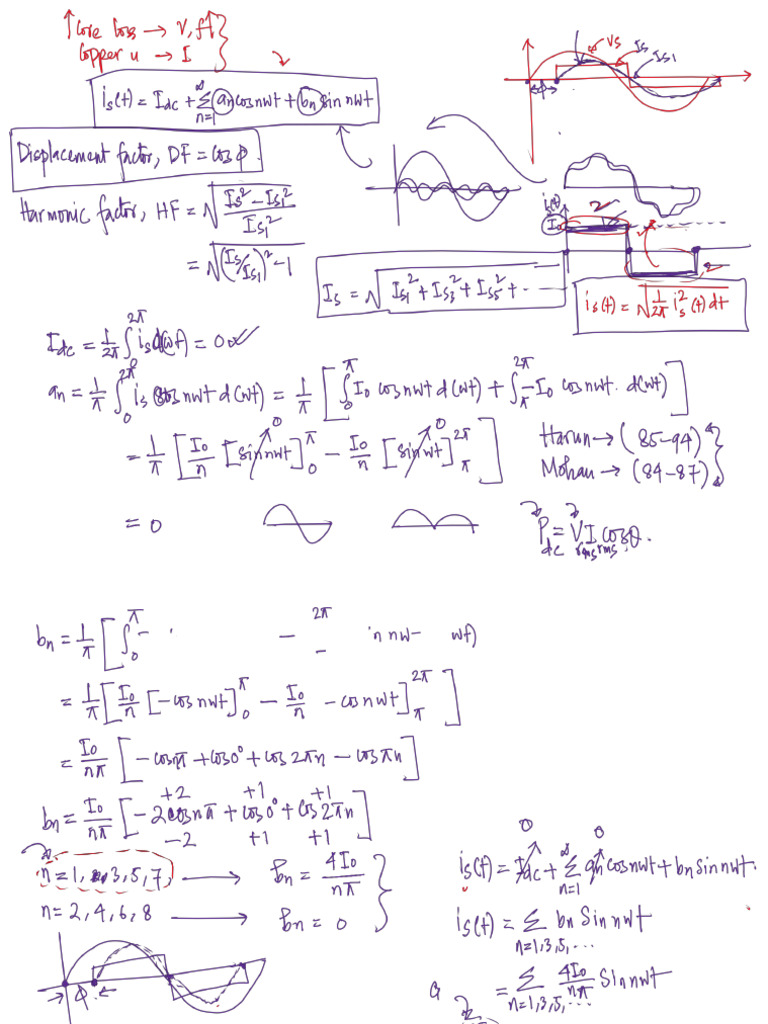 ↑Core loss → V, f↑
Copper u → I
i_s(t) = I_dc + Σ_{n=1}^{∞} a_n cos nwt + b_n sin nwt
Vs Is Is1
φ
Displacement factor, DF = cos φ.
Harmonic factor, HF = √((Is² − Is1²)/Is1²)
= √((Is/Is1)² − 1)
i_s(t)
I₀
2
Is = √(Is1² + Is3² + Is5² + ---
i_s(t) = √(1/2π i_s²(t) dt)
I_dc = 1/2π ∫₀^{2π} i_s d(wt) = 0
a_n = 1/π ∫₀^{2π} i_s cos nwt d(wt) = 1/π [∫₀^π I₀ cos nwt d(wt) + ∫_π^{2π} −I₀ cos nwt. d(wt)]
= 1/π [I₀/n [sin nwt]₀^π − I₀/n [sin nwt]_π^{2π}]
0 0
Harun → (85-94)
Mohan → (84-87)
= 0
P_dc = V_rms I_rms cosθ.
b_n = 1/π [∫₀^π − − 2π − in nw− wt)
= 1/π [I₀/n [−cos nwt]₀^π − I₀/n −cos nwt]_π^{2π}]
= I₀/nπ [−cos nπ + cos 0° + cos 2πn − cos πn]
+2 +1 +1
b_n = I₀/nπ [−2cos nπ + cos 0° + cos 2πn]
−2 +1 +1
n = 1, 3, 5, 7, → b_n = 4I₀/nπ
n = 2, 4, 6, 8 → b_n = 0
0 0
i_s(t) = I_dc + Σ_{n=1}^{∞} a_n cos nwt + b_n sin nwt.
i_s(t) = Σ_{n=1,3,5,...} b_n Sin nwt
= Σ_{n=1,3,5,...} 4I₀/nπ Sin nwt
φ